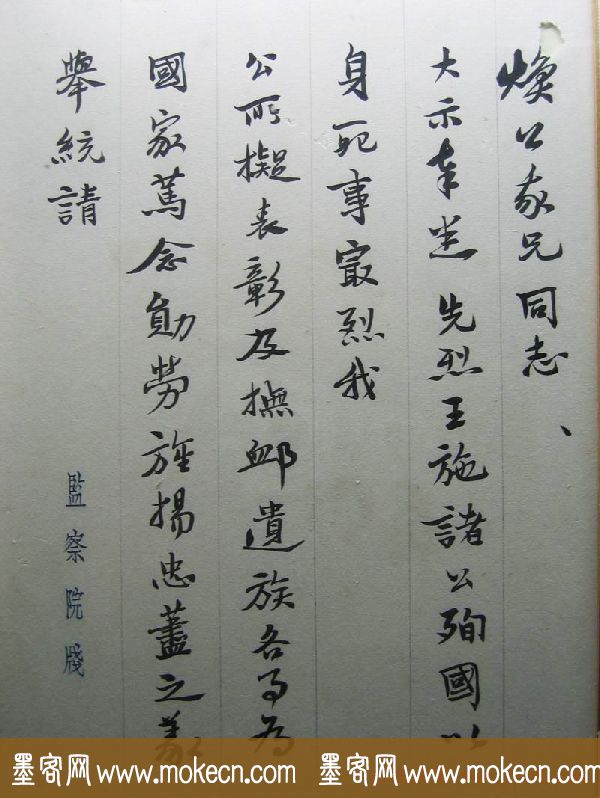 煥公我兄同志、
大示奉悉先烈王施諸公殉國以
身死事寂烈我
公所擬表彰及撫卹遺族各事為
國家篤念勛勞旌揚忠藎之義
舉統請
監察院牋
墨客网 www.mokecn.com 墨客网 www.mokecn.com